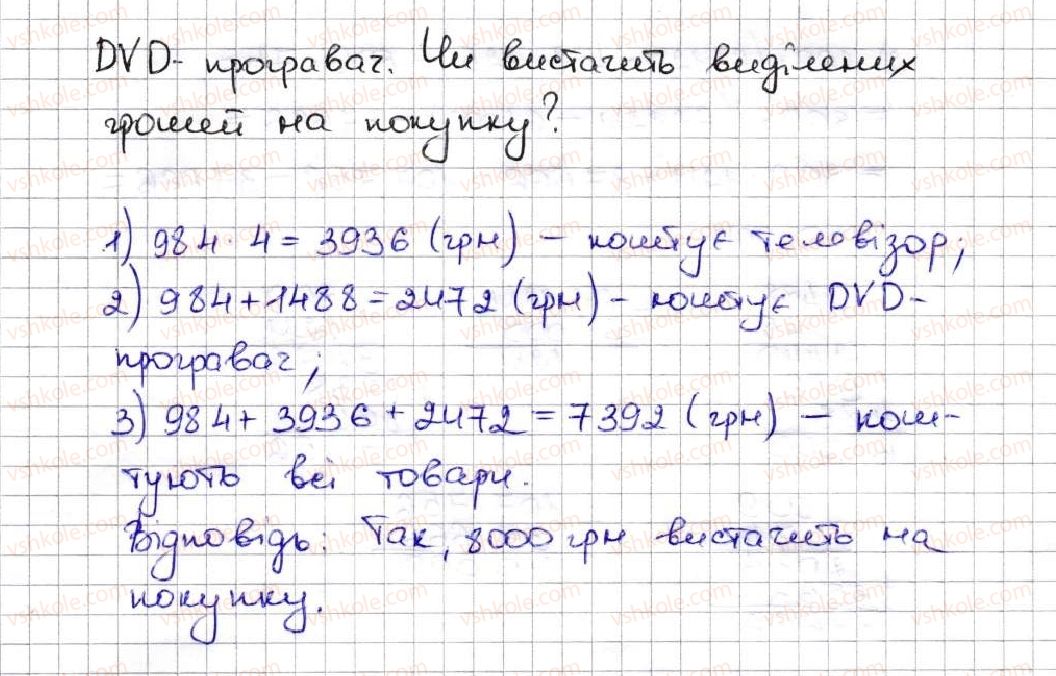 DVD- програвач. Чи вистачить виділених
грошей на покупку?
1) 984 · 4 = 3936 (грн) – коштує телевізор;
2) 984 + 1488 = 2472 (грн) – коштує DVD-
програвач;
3) 984 + 3936 + 2472 = 7392 (грн) – кош-
тують всі товари.
Відповідь: Так, 8000 грн вистачить на
покупку.